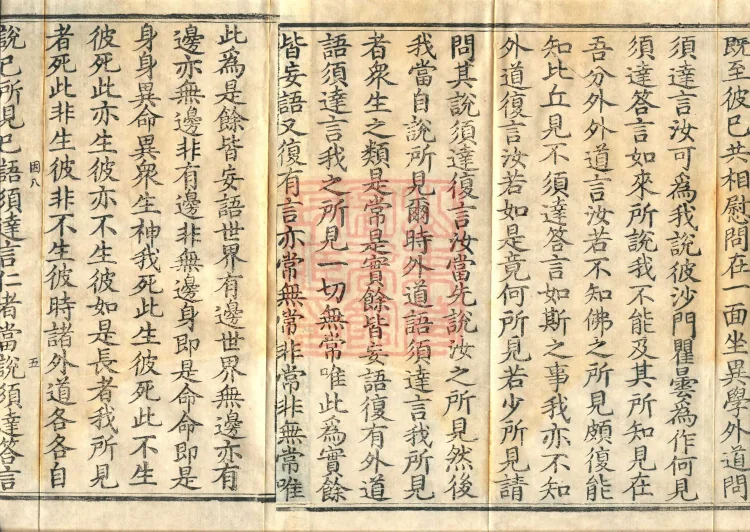 既至彼已共相慰問在一面坐異學外道問
須達言汝可為我說彼沙門瞿曇為作何見
須達答言如來所說我不能及其所知見在
吾分外外道言汝若不知佛之所見頗復能
知比丘見不須達答言如斯之事我亦不知
外道復言汝若如是竟何所見若少所見請
問其說須達復言汝當先說汝之所見然後
我當自說所見爾時外道語須達言我所見
者衆生之類是常是實餘皆妄語復有外道
語須達言我之所見一切無常唯此為實餘
皆妄語又復有言亦常無常非常非無常唯
此為是餘皆妄語世界有邊世界無邊亦有
邊亦無邊非有邊非無邊身即是命命即是
身身異命異衆生神我死此生彼死此不生
彼死此亦生彼亦不生彼如是長者我所見
者死此非生彼非不生彼時諸外道各各自
因八
五
說已所見已語須達言仁者當說須達答言